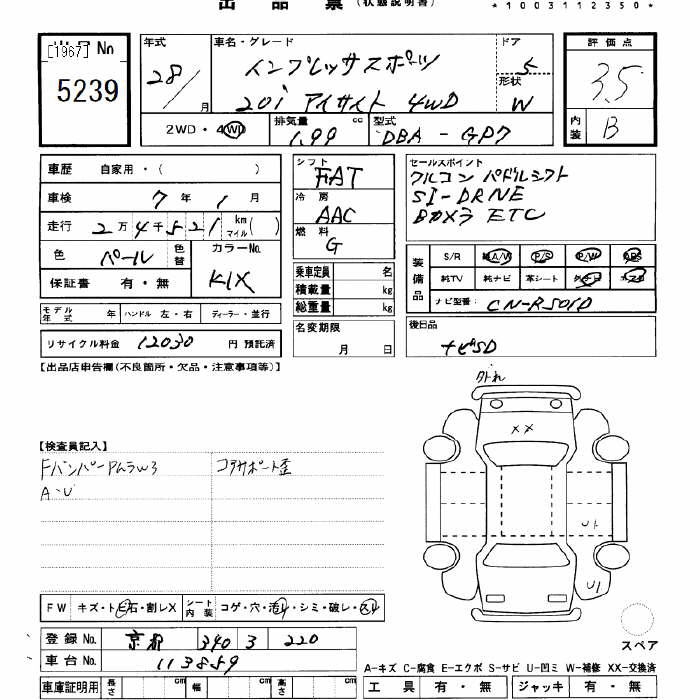 出品票(状態説明書)
*1003112350*
出品No [1967]
5239
年式 28/ 月
車名・グレード インプレッサスポーツ
20i アイサイト 4WD
ドア 5
形状 W
2WD・4WD
排気量 1.99 cc
型式 DBA-GP7
評価点 3.5
内装 B
車歴 自家用・( )
車検 7年 1月
走行 2万4千521 km マイル( )
色 パール 色替
カラーNo. K1X
保証書 有・無
モデル年式 年 ハンドル 左・右 ディーラー・並行
リサイクル料金 12030 円 預託済
シフト FAT
冷房 AAC
燃料 G
乗車定員 名
積載量 kg
総重量 kg
名変期限
月 日
セールスポイント
クルコン パドルシフト
SI-DRIVE
Bカメラ ETC
装備品
S/R 純A/W P/S P/W ABS
純TV 純ナビ 革シート
ナビ型番: CN-R501D
後日品
ナビSD
【出品店申告欄(不良箇所・欠品・注意事項等)】
【検査員記入】
FバンパーPムラW3 コアサポート歪
A・U
外れ
××
U1
U1
スペア
FW キズ・トビ石・割レX シート内装 コゲ・穴・汚レ・シミ・破レ・スレ
登録No. 京都 340 3 220
車台No. 113859
車庫証明用 長さ cm 幅 cm 高さ cm
A-キズ C-腐食 E-エクボ S-サビ U-凹ミ W-補修 XX-交換済
工具 有・無 ジャッキ 有・無